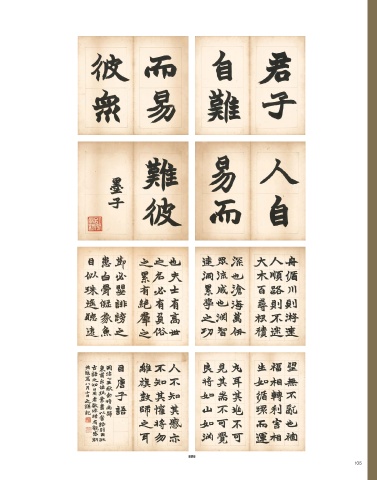 君子
自難
而易
彼眾
人自
易而
難彼
墨子
舟循川則游速
人順路則不迷
大木百尋根積
深也滄海萬仞
眾流成也淵智
達洞累學之功
也夫士有高世
之名必有負俗
之累有絕羣之
節必嬰誹謗之
患白骨疑象魚
目似珠遙聽遠
望無不亂也禍
福相轉利害相
生如循環而運
丸耳其兆不可
見其端不可覺
良將如山如淵
人不知其慼亦
不知其權將勿
離旗鼓師之耳
目唐子語
105